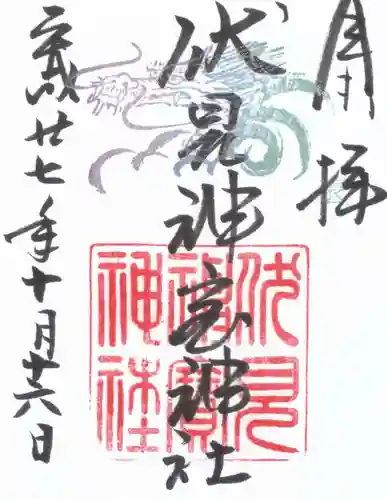 奉拝
伏見神宝神社
平成廿七年十月廿六日
伏見
神寶
神社